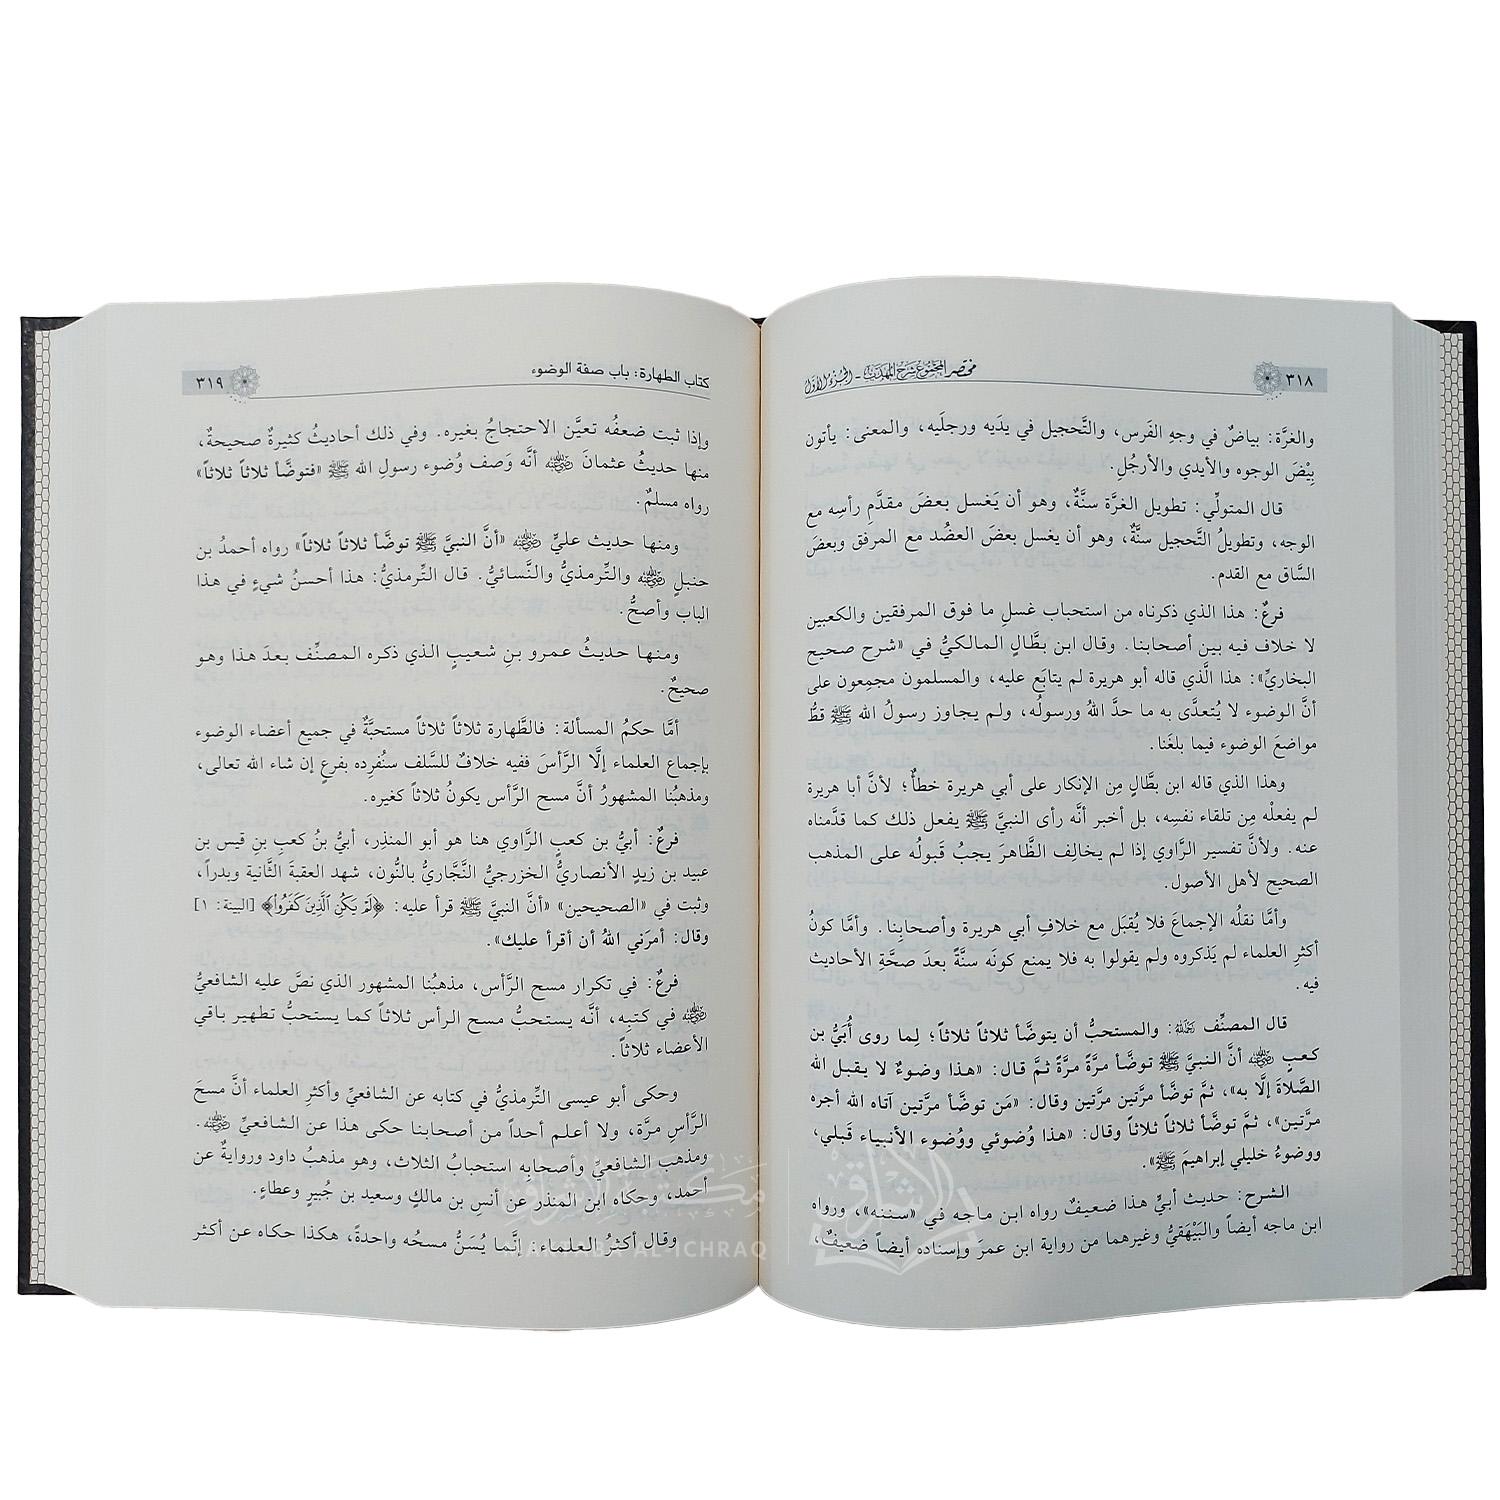 ٣١٨
مختصر المجموع شرح المهذب - الجزء الأول
والغرَّة: بياضٌ في وجهِ الفَرس، والتَّحجيل في يدَيه ورجلَيه، والمعنى: يأتون
بِيْضَ الوجوه والأيدي والأرجُلِ.
قال المتولِّي: تطويل الغرَّة سنَّةٌ، وهو أن يَغسل بعضَ مقدَّمِ رأسِه مع
الوجه، وتطويلُ التَّحجيل سنَّةٌ، وهو أن يغسل بعضَ العضُد مع المرفق وبعضَ
السَّاق مع القدم.
فرعٌ: هذا الذي ذكرناه من استحباب غسلِ ما فوق المرفقين والكعبين
لا خلاف فيه بين أصحابنا. وقال ابن بطَّالٍ المالكيُّ في «شرح صحيح
البخاريِّ»: هذا الَّذي قاله أبو هريرة لم يتابَع عليه، والمسلمون مجمِعون على
أنَّ الوضوء لا يُتعدَّى به ما حدَّ اللهُ ورسولُه، ولم يجاوز رسولُ الله ﷺ قطُّ
مواضعَ الوضوء فيما بلغَنا.
وهذا الذي قاله ابن بطَّالٍ مِن الإنكار على أبي هريرة خطأٌ؛ لأنَّ أبا هريرة
لم يفعلْه مِن تلقاء نفسِه، بل أخبر أنَّه رأى النبيَّ ﷺ يفعل ذلك كما قدَّمناه
عنه. ولأنَّ تفسير الرَّاوي إذا لم يخالِف الظَّاهرَ يجبُ قَبولُه على المذهب
الصحيح لأهل الأصول.
وأمَّا نقلُه الإجماعَ فلا يُقبَل مع خلافِ أبي هريرة وأصحابِنا. وأمَّا كونُ
أكثرِ العلماء لم يَذكروه ولم يقولوا به فلا يمنع كونَه سنَّةً بعدَ صحَّةِ الأحاديث
فيه.
قال المصنِّف رحمه الله: والمستحبُّ أن يتوضَّأ ثلاثاً ثلاثاً؛ لِما روى أُبَيُّ بن
كعبٍ رضي الله عنه أنَّ النبيَّ ﷺ توضَّأ مرَّةً مرَّةً ثمَّ قال: «هذا وضوءٌ لا يقبل الله
الصَّلاةَ إلَّا به»، ثمَّ توضَّأ مرَّتين مرَّتين وقال: «مَن توضَّأ مرَّتين آتاه الله أجره
مرَّتين»، ثمَّ توضَّأ ثلاثاً ثلاثاً وقال: «هذا وُضوئي ووُضوء الأنبياء قَبلي،
ووضوءُ خليلي إبراهيمَ ﷺ».
الشرح: حديث أبيٍّ هذا ضعيفٌ رواه ابن ماجه في «سننه»، ورواه
ابن ماجه أيضاً والبَيْهَقيُّ وغيرهما من رواية ابن عمرَ وإسناده أيضاً ضعيفٌ،
كتاب الطهارة: باب صفة الوضوء
٣١٩
وإذا ثبت ضعفُه تعيَّن الاحتجاجُ بغيره. وفي ذلك أحاديثُ كثيرةٌ صحيحةٌ،
منها حديثُ عثمانَ رضي الله عنه أنَّه وَصف وُضوء رسولِ الله ﷺ «فتوضَّأ ثلاثاً ثلاثاً»
رواه مسلمٌ.
ومنها حديث عليٍّ رضي الله عنه «أنَّ النبيَّ ﷺ توضَّأ ثلاثاً ثلاثاً» رواه أحمدُ بن
حنبلٍ رضي الله عنه والتِّرمذيُّ والنَّسائيُّ. قال التِّرمذيُّ: هذا أحسنُ شيءٍ في هذا
الباب وأصحُّ.
ومنها حديثُ عمرو بنِ شعيبٍ الذي ذكره المصنِّف بعدَ هذا وهو
صحيحٌ.
أمَّا حكمُ المسألة: فالطَّهارة ثلاثاً ثلاثاً مستحبَّةٌ في جميع أعضاء الوضوء
بإجماع العلماء إلَّا الرَّأسَ ففيه خلافٌ للسَّلف سنُفرِده بفرعٍ إن شاء الله تعالى،
ومذهبُنا المشهورُ أنَّ مسح الرَّأس يكونُ ثلاثاً كغيره.
فرعٌ: أبيُّ بن كعبٍ الرَّاوي هنا هو أبو المنذِر، أبيُّ بنُ كعبِ بنِ قيس بن
عبيد بن زيدٍ الأنصاريُّ الخزرجيُّ النَّجَّاريُّ بالنُّون، شهد العقبةَ الثَّانية وبدراً،
وثبت في «الصحيحين» «أنَّ النبيَّ ﷺ قرأ عليه: ﴿لَمْ يَكُنِ الَّذِينَ كَفَرُوا﴾ [البينة: ١]
وقال: أمرَني اللهُ أن أقرأ عليك».
فرعٌ: في تكرار مسح الرَّأس، مذهبُنا المشهور الذي نصَّ عليه الشافعيُّ
رضي الله عنه في كتبِه، أنَّه يستحبُّ مسح الرأس ثلاثاً كما يستحبُّ تطهير باقي
الأعضاء ثلاثاً.
وحكى أبو عيسى التِّرمذيُّ في كتابه عن الشافعيِّ وأكثرِ العلماء أنَّ مسحَ
الرَّأسِ مرَّة، ولا أعلم أحداً من أصحابنا حكى هذا عن الشافعيِّ رضي الله عنه.
ومذهب الشافعيِّ وأصحابِه استحبابُ الثلاث، وهو مذهبُ داود وروايةٌ عن
أحمد، وحكاه ابن المنذر عن أنس بن مالكٍ وسعيد بن جُبيرٍ وعطاءٍ.
وقال أكثرُ العلماء: إنَّما يُسَنُّ مسحُه واحدةً، هكذا حكاه عن أكثر
مكتبة الإشراق
MAKTABA AL-ICHRAQ
الإشراق